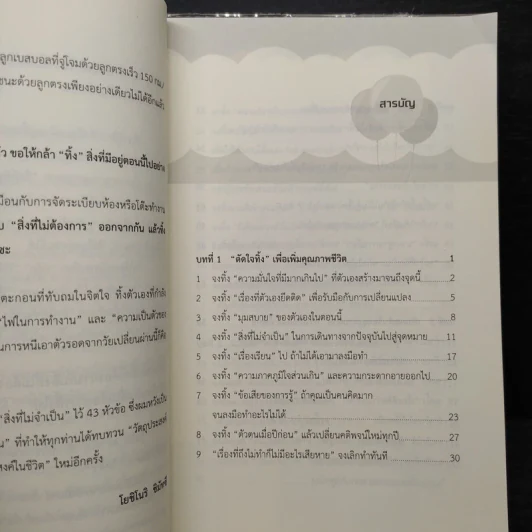 ลูกเบสบอลที่จู่โจมด้วยลูกตรงเร็ว 150 กม./
ชนะด้วยลูกตรงเพียงอย่างเดียวไม่ได้อีกแล้ว
ขอให้กล้า "ทิ้ง" สิ่งที่มีอยู่ตอนนี้ไปอย่าง
มือนกับการจัดระเบียบห้องหรือโต๊ะทำงาน
"สิ่งที่ไม่ต้องการ" ออกจากกัน แล้วทิ้ง
ซะ
ตะกอนที่ทับถมในจิตใจ ทิ้งตัวเองที่กำลัง
"ไฟในการทำงาน" และ "ความเป็นตัวของ
ในการหนีเอาตัวรอดจากวัยเปลี่ยนผ่านนี้ก็คือ
"สิ่งที่ไม่จำเป็น" ไว้ 43 หัวข้อ ซึ่งผมหวังเป็น
ที่ทำให้ทุกท่านได้ทบทวน "วัตถุประสงค์
งค์ในชีวิต" ใหม่อีกครั้ง
โยชิโนริ
สารบัญ
บทที่ 1 "ตัดใจทิ้ง" เพื่อเพิ่มคุณภาพชีวิต 1
1 จงทิ้ง "ความมั่นใจที่มีมากเกินไป" ที่ตัวเองสร้างมาจนถึงจุดนี้ 2
2 จงทิ้ง "เรื่องที่ตัวเองยึดติด" เพื่อรับมือกับการเปลี่ยนแปลง 5
3 จงทิ้ง "มุมสบาย" ของตัวเองในตอนนี้ 8
4 จงทิ้ง "สิ่งที่ไม่จำเป็น" ในการเดินทางจากปัจจุบันไปสู่จุดหมาย 11
5 จงทิ้ง "เรื่องเรียน" ไป ถ้าไม่ได้เอามาลงมือทำ 17
6 จงทิ้ง "ความภาคภูมิใจส่วนเกิน" และความกระดากอายออกไป 20
7 จงทิ้ง "ข้อเสียของการรู้" ถ้าคุณเป็นคนคิดมาก
จนลงมือทำอะไรไม่ได้ 23
8 จงทิ้ง "ตัวตนเมื่อปีก่อน" แล้วเปลี่ยนคติพจน์ใหม่ทุกปี 27
9 "เรื่องที่ถึงไม่ทำก็ไม่มีอะไรเสียหาย" จงเลิกทำทันที 30